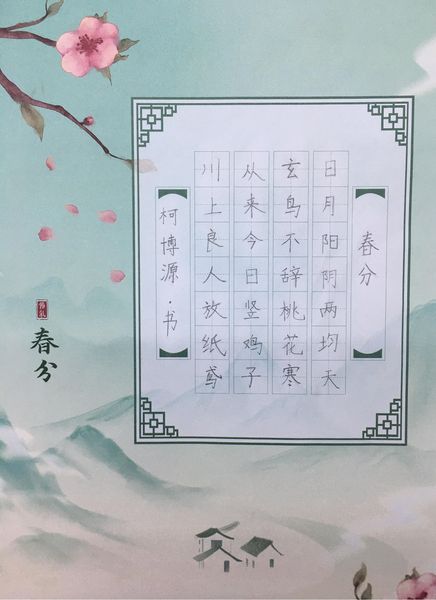 春分
日月阳阴两均天
玄鸟不辞桃花寒
从来今日竖鸡子
川上良人放纸鸢
柯博源·书
春分